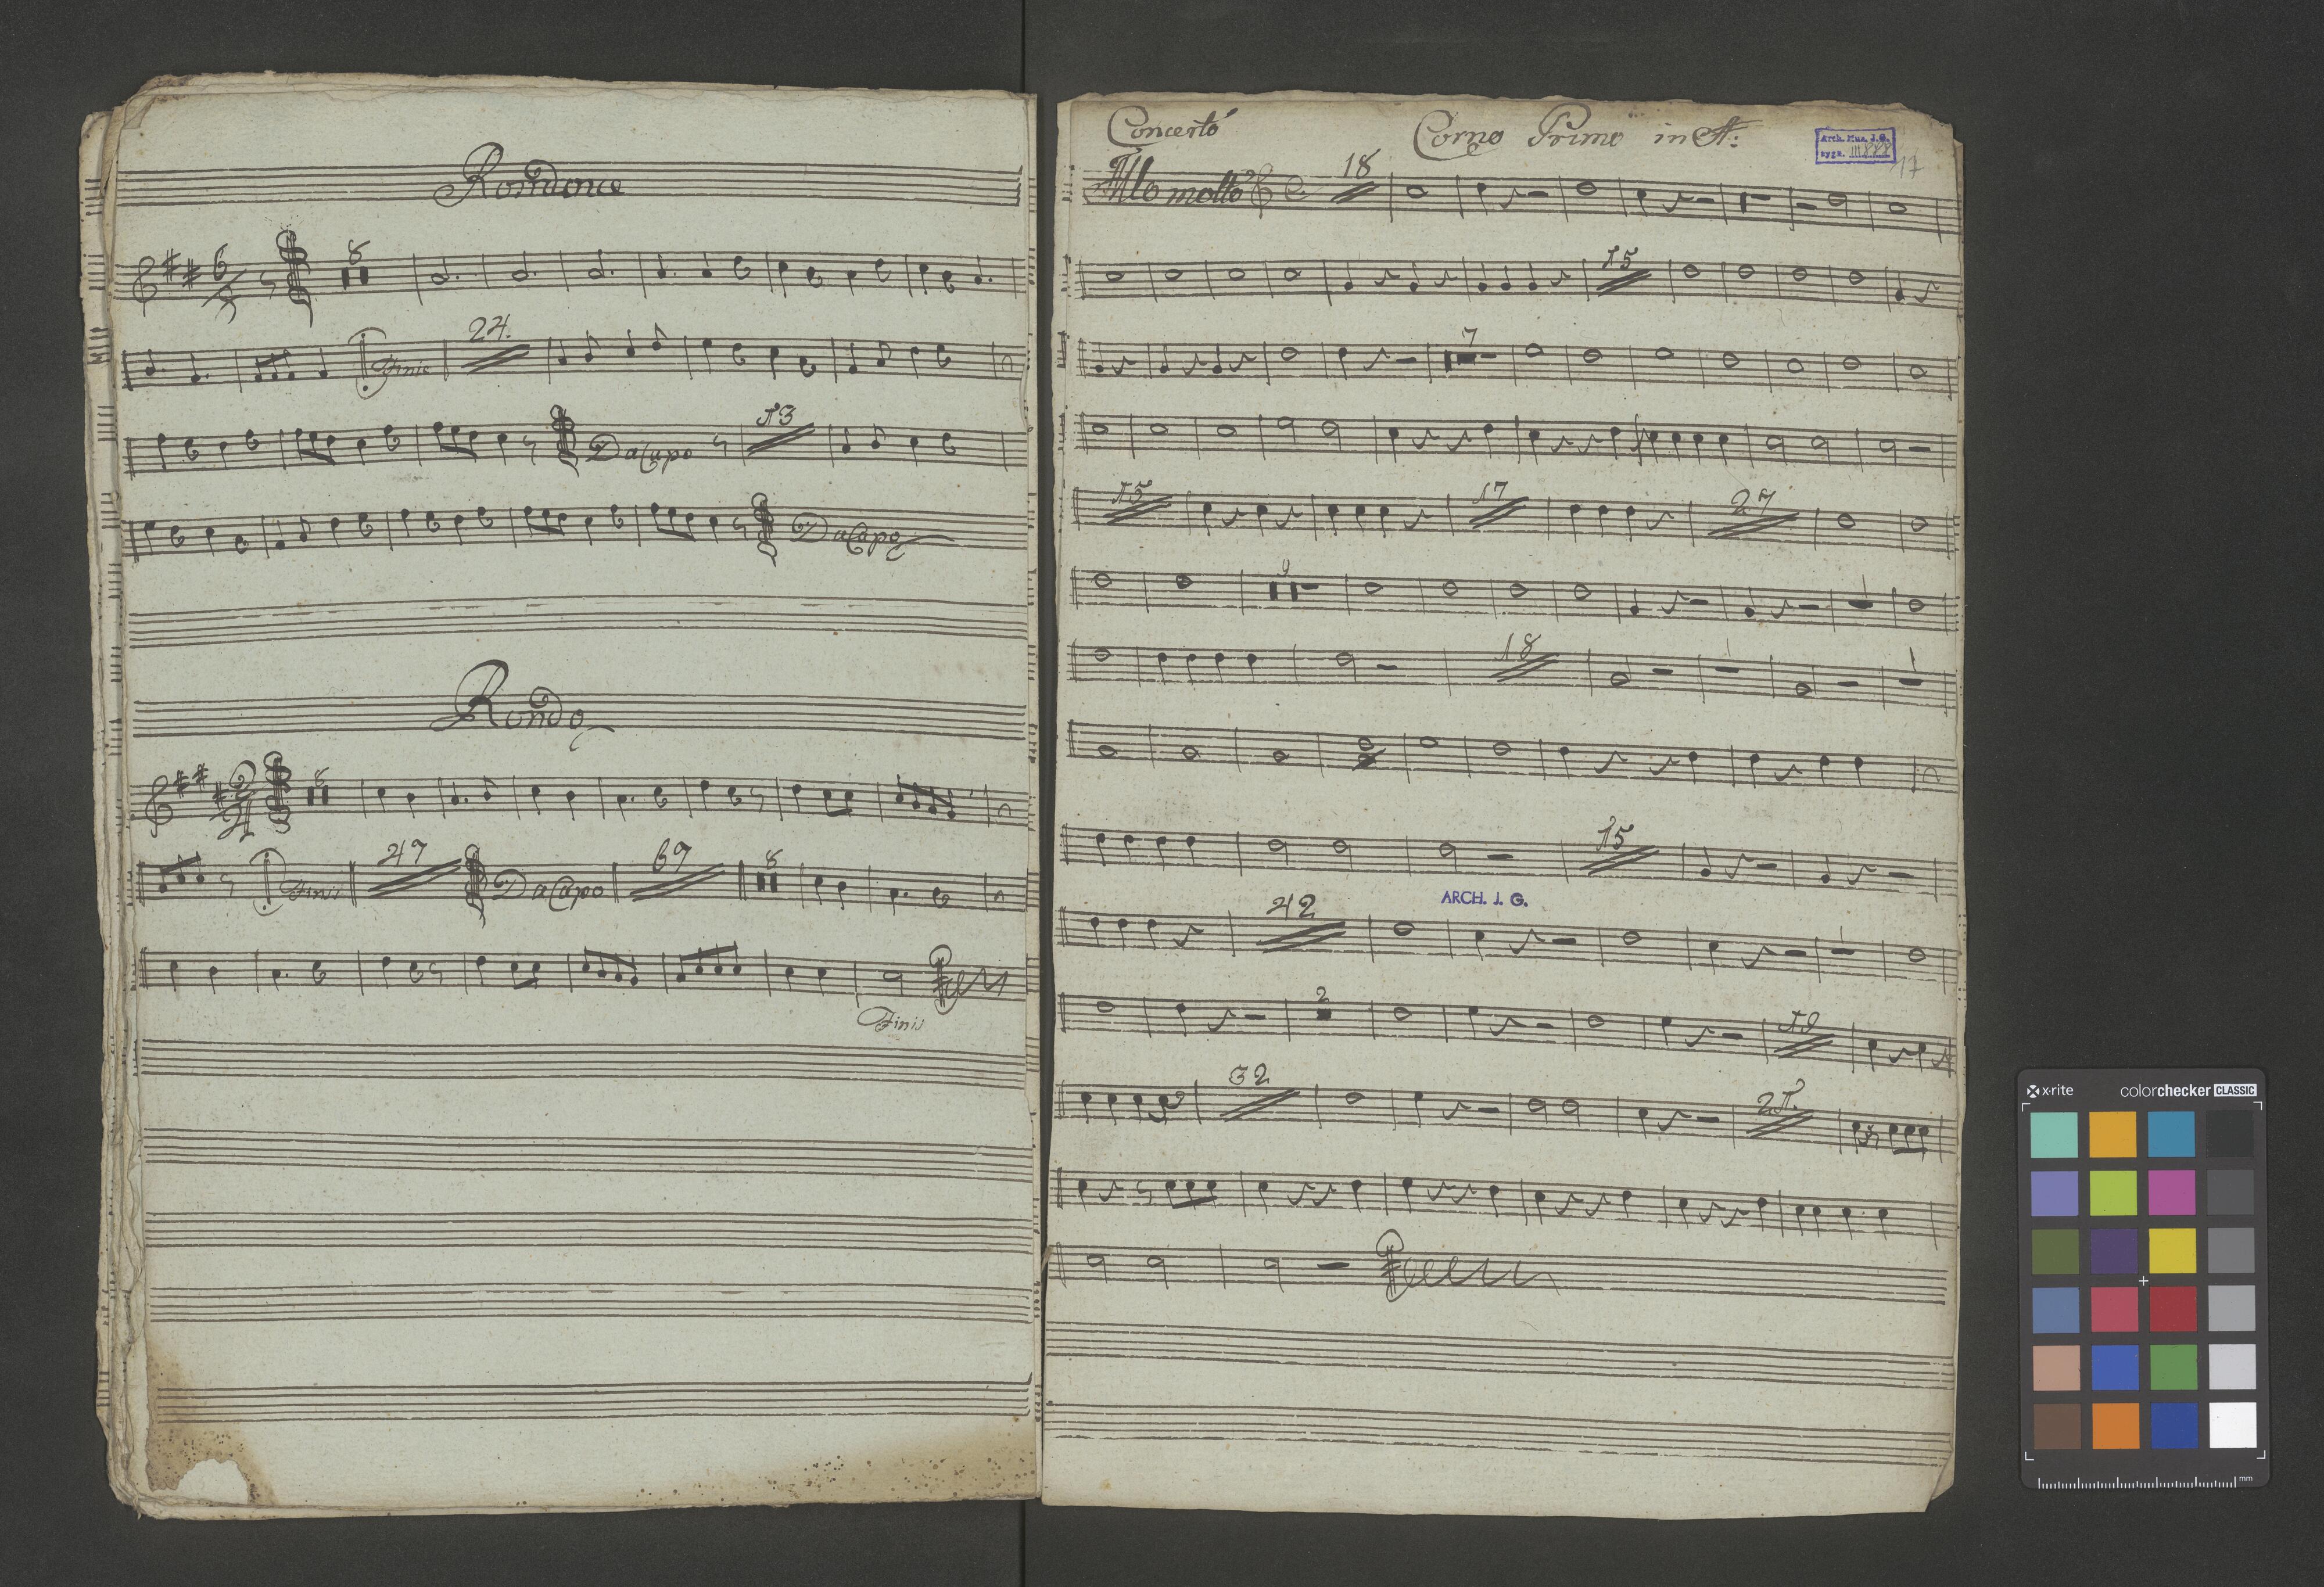 Rondone
6
8
8
Finis
24.
Da Capo
13
Da Capo
Rondo
2
4
8
Finis
47
Da Capo
67
8
Finis
Concerto
Corno Primo in A:
Arch. Mus. J. G.
sygn. III 888
17
Allo molto
18
15
7
15
17
27
9
18
15
ARCH. J. G.
42
2
19
32
21.
x-rite
colorchecker CLASSIC
mm